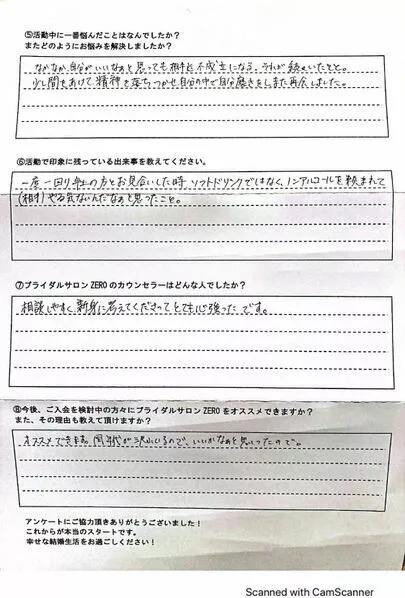 ⑤活動中に一番悩んだことはなんでしたか?
またどのようにお悩みを解決しましたか?
なかなか自分がいいなぁと思っても相手と不成立になる。それが続いたこと。
少し間をあけて精神を落ちつかせ自分の中で自分磨きをしまた再会しました。
⑥活動で印象に残っている出来事を教えてください。
一度一回り年上の方とお見合いした時 ソフトドリンクではなく、ノンアルコールを頼まれて
(相手)やる気ないんだなぁと思ったこと。
⑦ブライダルサロンZEROのカウンセラーはどんな人でしたか?
相談しやすく、親身に答えてくださってとても心強ったです。
⑧今後、ご入会を検討中の方々にブライダルサロンZEROをオススメできますか?
また、その理由も教えて頂けますか?
オススメできます。同年代が沢山いるので、いいかなぁと思いったので。
アンケートにご協力頂きありがとうございました!
これからが本当のスタートです。
幸せな結婚生活をお過ごしください!
Scanned with CamScanner